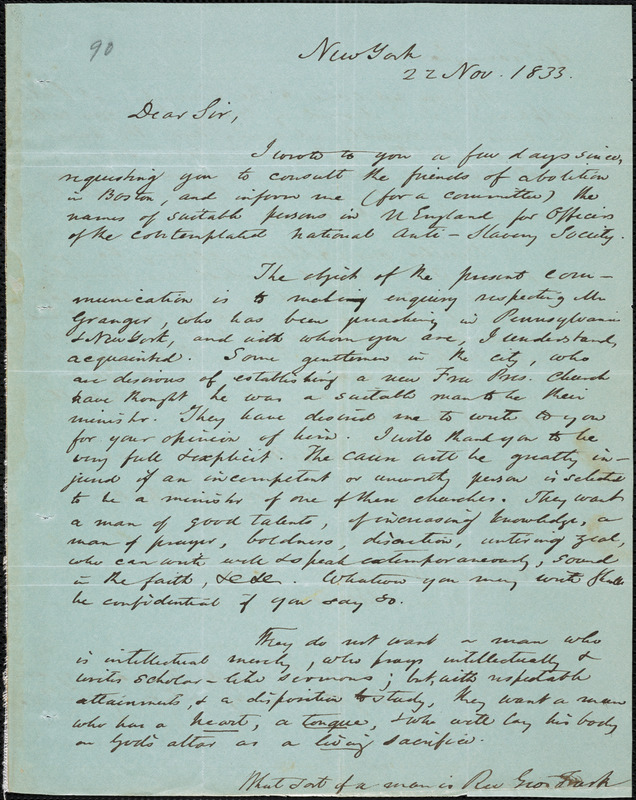 90
New York
22 Nov. 1833.
Dear Sir,
I wrote to you a few days since,
requesting you to consult the friends of abolition
in Boston, and inform me (for a committee) the
names of suitable persons in N England for Officers
of the contemplated national Anti-Slavery Society.
The object of the present com-
munication is to making enquiry respecting Mr
Granger, who has been preaching in Pennsylvania
& New York, and with whom you are, I understand,
acquainted. Some gentlemen in the city, who
are desirous of establishing a new Free Pres. Church
have thought he was a suitable man to be their
minister. They have desired me to write to you
for your opinion of him. I will thank you to be
very full & explicit. The cause will be greatly in-
jured if an incompetent or unworthy person is selected
to be a minister of one of these churches. They want
a man of good talents, of increasing knowledge, a
man of prayer, boldness, discretion, untiring zeal,
who can write well & speak extemporaneously, sound
in the faith, &c &c. Whatever you may write shall
be confidential if you say so.
They do not want a man who
is intellectual merely, who prays intellectually &
writes scholar-like sermons; but, with respectable
attainments, & a disposition to study, they want a man
who has a heart, a tongue, & who will lay his body
on God's altar as a living sacrifice.
What sort of a man is Rev Geo